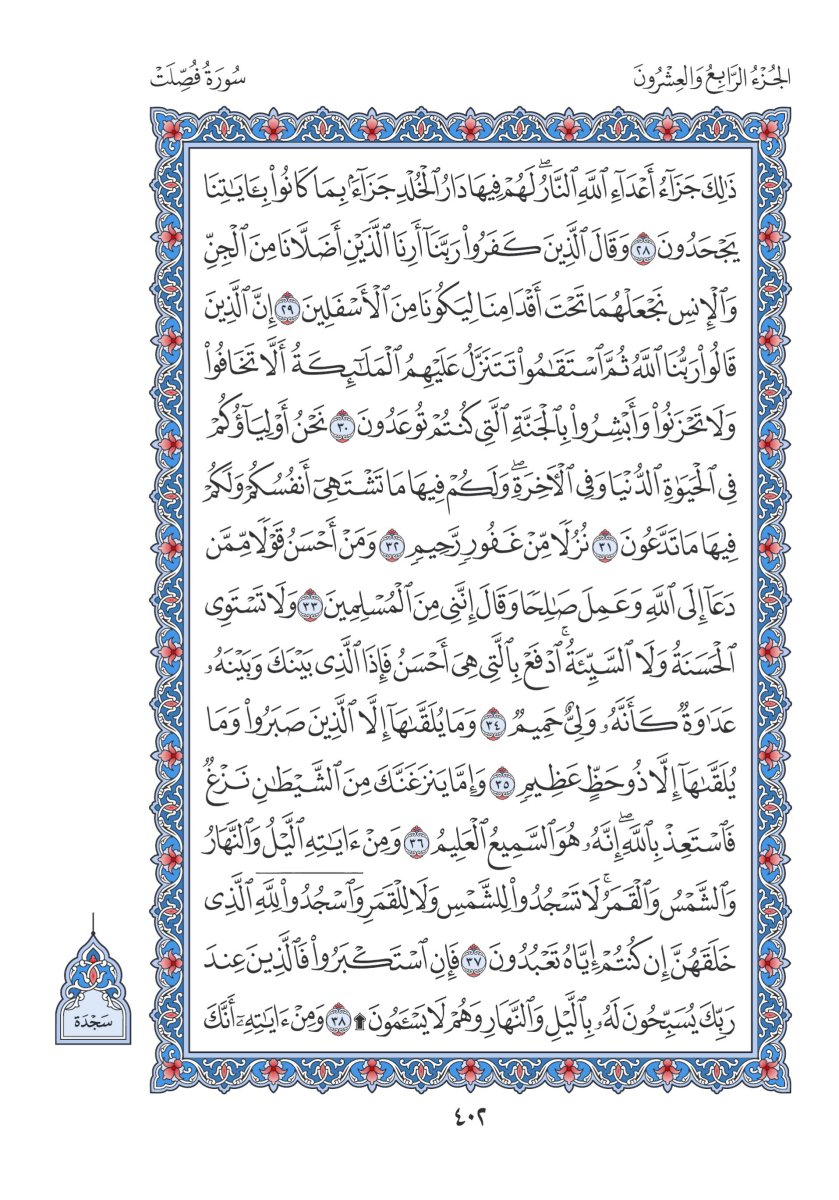 الجُزْءُ الرَّابِعُ وَالعِشْرُونَ
سُورَةُ فُصِّلَتْ
ذَٰلِكَ جَزَآءُ أَعْدَآءِ ٱللَّهِ ٱلنَّارُۖ لَهُمْ فِيهَا دَارُ ٱلْخُلْدِ جَزَآءَۢ بِمَا كَانُوا۟ بِـَٔايَٰتِنَا
يَجْحَدُونَ ٢٨ وَقَالَ ٱلَّذِينَ كَفَرُوا۟ رَبَّنَآ أَرِنَا ٱلَّذَيْنِ أَضَلَّانَا مِنَ ٱلْجِنِّ
وَٱلْإِنسِ نَجْعَلْهُمَا تَحْتَ أَقْدَامِنَا لِيَكُونَا مِنَ ٱلْأَسْفَلِينَ ٢٩ إِنَّ ٱلَّذِينَ
قَالُوا۟ رَبُّنَا ٱللَّهُ ثُمَّ ٱسْتَقَٰمُوا۟ تَتَنَزَّلُ عَلَيْهِمُ ٱلْمَلَٰٓئِكَةُ أَلَّا تَخَافُوا۟
وَلَا تَحْزَنُوا۟ وَأَبْشِرُوا۟ بِٱلْجَنَّةِ ٱلَّتِى كُنتُمْ تُوعَدُونَ ٣٠ نَحْنُ أَوْلِيَآؤُكُمْ
فِى ٱلْحَيَوٰةِ ٱلدُّنْيَا وَفِى ٱلْـَٔاخِرَةِۖ وَلَكُمْ فِيهَا مَا تَشْتَهِىٓ أَنفُسُكُمْ وَلَكُمْ
فِيهَا مَا تَدَّعُونَ ٣١ نُزُلًا مِّنْ غَفُورٍ رَّحِيمٍ ٣٢ وَمَنْ أَحْسَنُ قَوْلًا مِّمَّن
دَعَآ إِلَى ٱللَّهِ وَعَمِلَ صَٰلِحًا وَقَالَ إِنَّنِى مِنَ ٱلْمُسْلِمِينَ ٣٣ وَلَا تَسْتَوِى
ٱلْحَسَنَةُ وَلَا ٱلسَّيِّئَةُۚ ٱدْفَعْ بِٱلَّتِى هِىَ أَحْسَنُ فَإِذَا ٱلَّذِى بَيْنَكَ وَبَيْنَهُۥ
عَدَٰوَةٌ كَأَنَّهُۥ وَلِىٌّ حَمِيمٌ ٣٤ وَمَا يُلَقَّىٰهَآ إِلَّا ٱلَّذِينَ صَبَرُوا۟ وَمَا
يُلَقَّىٰهَآ إِلَّا ذُو حَظٍّ عَظِيمٍ ٣٥ وَإِمَّا يَنزَغَنَّكَ مِنَ ٱلشَّيْطَٰنِ نَزْغٌ
فَٱسْتَعِذْ بِٱللَّهِۖ إِنَّهُۥ هُوَ ٱلسَّمِيعُ ٱلْعَلِيمُ ٣٦ وَمِنْ ءَايَٰتِهِ ٱلَّيْلُ وَٱلنَّهَارُ
وَٱلشَّمْسُ وَٱلْقَمَرُۚ لَا تَسْجُدُوا۟ لِلشَّمْسِ وَلَا لِلْقَمَرِ وَٱسْجُدُوا۟ لِلَّهِ ٱلَّذِى
خَلَقَهُنَّ إِن كُنتُمْ إِيَّاهُ تَعْبُدُونَ ٣٧ فَإِنِ ٱسْتَكْبَرُوا۟ فَٱلَّذِينَ عِندَ
رَبِّكَ يُسَبِّحُونَ لَهُۥ بِٱلَّيْلِ وَٱلنَّهَارِ وَهُمْ لَا يَسْـَٔمُونَ ۩ ٣٨ وَمِنْ ءَايَٰتِهِۦٓ أَنَّكَ
سَجْدَة
٤٠٢